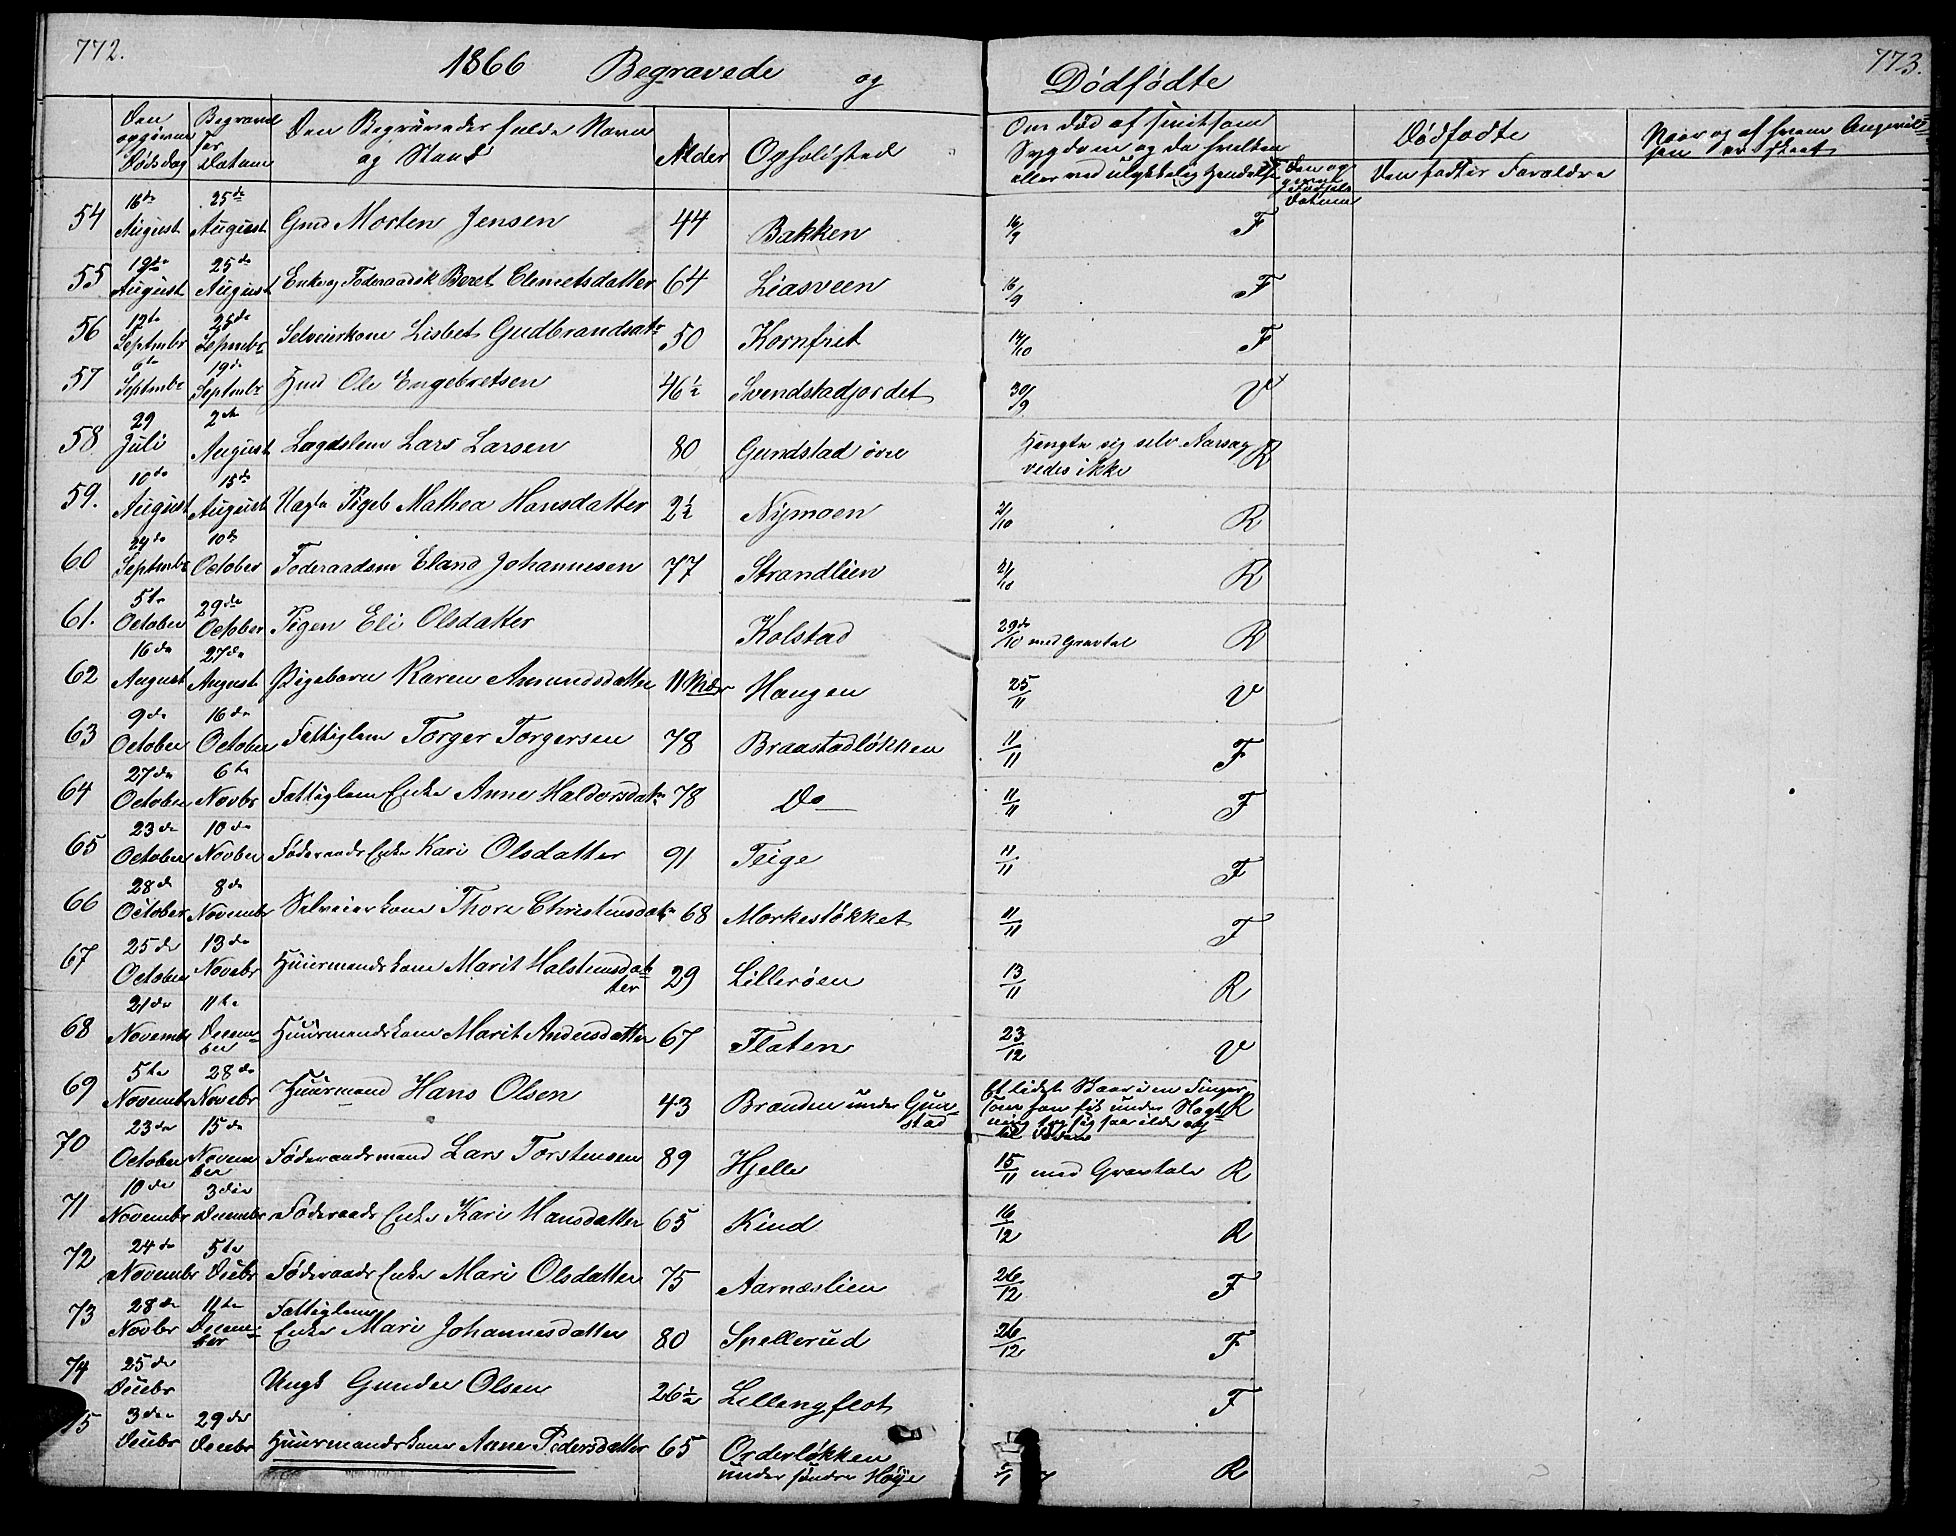 772. 1866 Begravede og Dødfødte 773.
Den opgivne Dødsdag | Begravelses Datum | Den Begravedes fulde Navn og Stand | Alder | Opholdsted | Om død af smitsom Sygdom og da hvilken eller ved ulykkelig Hendelse | Dødfødte | Den Dødfødtes Datum | Den fødtes Forældre
54 16de August 25de August Gmd Morten Jensen 44 Bakken 16/9 F
55 19de August 25de August Enke og Føderaadsk Beret Clemetsdatter 64 Liasveen 16/9 F
56 12te Septembr 25de Sepmbr Selveierkone Lisbet Gudbrandsdtr 50 Kornfrit 14/10 F
57 6te Septmbr 19de Septmbr Hmd Ole Engebretsen 46½ Svendstadjordet 30/9 V
58 29 Juli 2den August Lægdslem Lars Larsen 80 Gundstad øvre Hengte sig selv Aarsag vides ikke R
59. 10de August 15de August Uægte Pigeb Mathea Hansdatter 2½ Nymoen 2/10 R
60 24de Septmbr 10de October Føderaadsm Eland Johannesen 77 Strandlien 21/10 R
61. 5te October 29de October Pigen Eli Olsdatter Kolstad 29de/10 med Gravtal R
62 16de August 27de August Pigebarn Karen Amundsdatter 11 Mdr Haugen 25/11 V
63 9de October 16de October Fattiglem Torger Torgersen 78 Braastadløkken 11/11 F
64 27de October 6te Novbr Fattiglem Enke Anne Haldorsdatr 78 Do 11/11 F
65 23de October 10de Novber Føderaads Enke Kari Olsdatter 91 Teige 11/11 F
66 28de October 8de Novembr Selveierkone Thore Christensdatr 68 Morkestøkket 11/11 F
67 25de October 13de Novebr Huusmandskone Marit Halstensdatter 29 Lillerøen 13/11 R
68 21de Novembr 11te December Huusmandskone Marit Andersdatter 67 Flaten 23/12 V
69 5te Novembr 28de Novebr Huusmand Hans Olsen 43 Brænden under Gunstad Et lidet Skaar i en Finger som han fik under Slagtning tog sig saa ilde og til Døden R
70 23de October 15de November Føderaadsmand Lars Torstensen 89 Hjelle 15/11 med Gravtale R
71 10de Novembr 3die Decembr Føderaads Enke Kari Hansdatter 65 Kind 16/12 R
72 24de Novembr 5te Decbr Føderaads Enke Mari Olsdatter 75 Aarnæslien 26/12 F
73 28de Novbr 11te December Fattiglem Enke Mari Johannesdatter 80 Snellerud 26/12 F
74 25de Decebr Ungk Gunder Olsen 26½ Lillengflot F
75 3die Decebr 29de Decebr Huusmandskone Anne Pedersdatter 65 Orderløkken under søndre Høye R